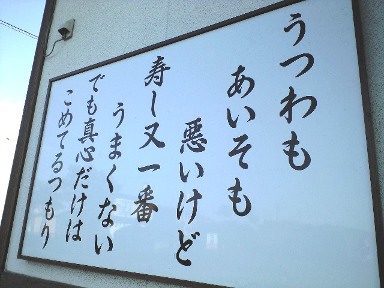 うつわも
あいそも
悪いけど
寿し又一番
うまくない
でも真心だけは
こめてるつもり